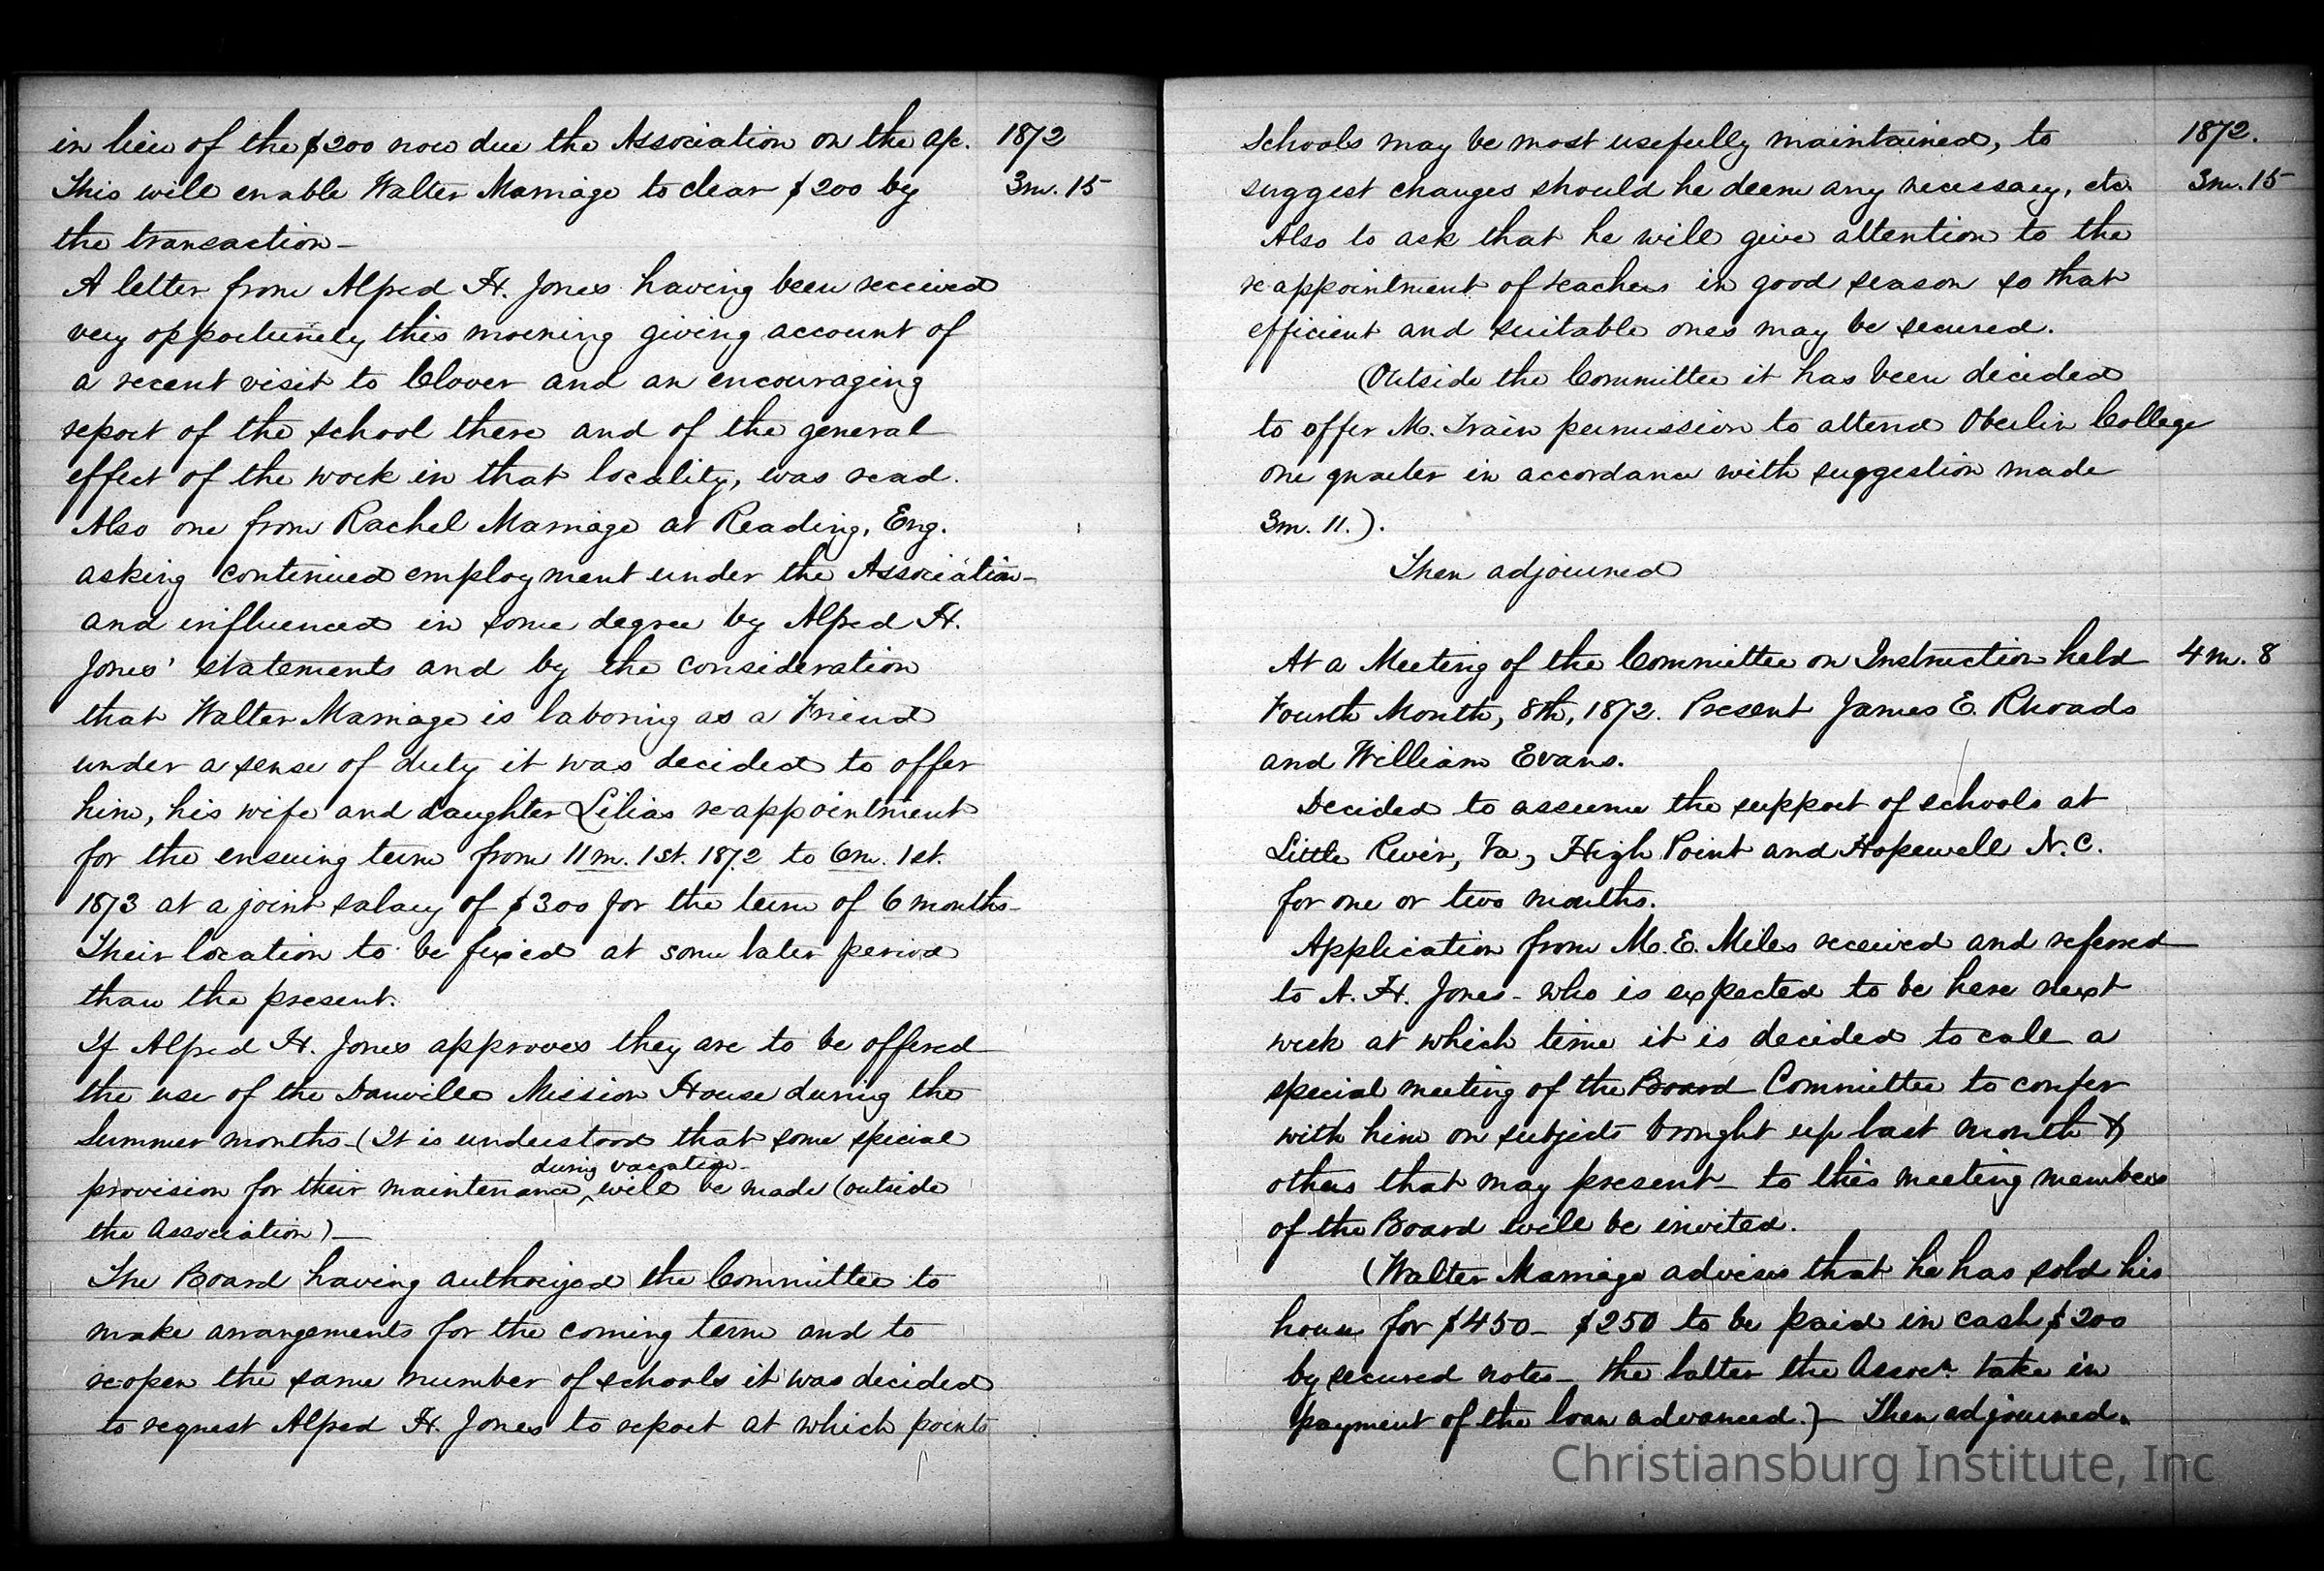 in lieu of the $200 now due the Association on the a/c.
1872
This will enable Walter Marriage to clear $200 by
3m. 15
the transaction –
A letter from Alfred H. Jones having been received
very opportunely this morning giving account of
a recent visit to Clover and an encouraging
report of the school there and of the general
effect of the work in that locality, was read.
Also one from Rachel Marriage at Reading, Eng.
asking continued employment under the Association –
and influenced in some degree by Alfred H.
Jones' statements and by the consideration
that Walter Marriage is laboring as a Friend
under a sense of duty it was decided to offer
him, his wife and daughter Lilias re-appointment
for the ensuing term from 11m. 1st. 1872 to 6m. 1st.
1873 at a joint salary of $300 for the term of 6 months –
Their location to be fixed at some later period
than the present.
If Alfred H. Jones approves they are to be offered
the use of the Danville Mission House during the
Summer months – (It is understood that some special
during vacation
provision for their maintenance, ^ will be made (outside
the Association) —
The Board having authorized the Committee to
make arrangements for the coming term and to
re-open the same number of schools it was decided
to request Alfred H. Jones to report at which points
Schools may be most usefully maintained, to
1872.
suggest changes should he deem any necessary, etc.
3m. 15
Also to ask that he will give attention to the
re appointment of teachers in good season so that
efficient and suitable ones may be secured.
(Outside the Committee it has been decided
to offer M. Train permission to attend Oberlin College
one quarter in accordance with suggestion made
3m. 11.).
Then adjourned
At a Meeting of the Committee on Instruction held
4m. 8
Fourth Month, 8th, 1872. Present James E. Rhoads
and William Evans.
Decided to assume the support of schools at
Little River, Va., High Point and Hopewell N.C.
for one or two months.
Application from M. E. Miles received and referred
to A. H. Jones – who is expected to be here next
week at which time it is decided to call a
special meeting of the Board Committee to confer
with him on subjects brought up last month &
others that may present – to this meeting members
of the Board will be invited.
(Walter Marriage advises that he has sold his
house for $450 – $250 to be paid in cash $200
by secured notes – the latter the Assocn. take in
payment of the loan advanced.) – Then adjourned.
Christiansburg Institute, Inc